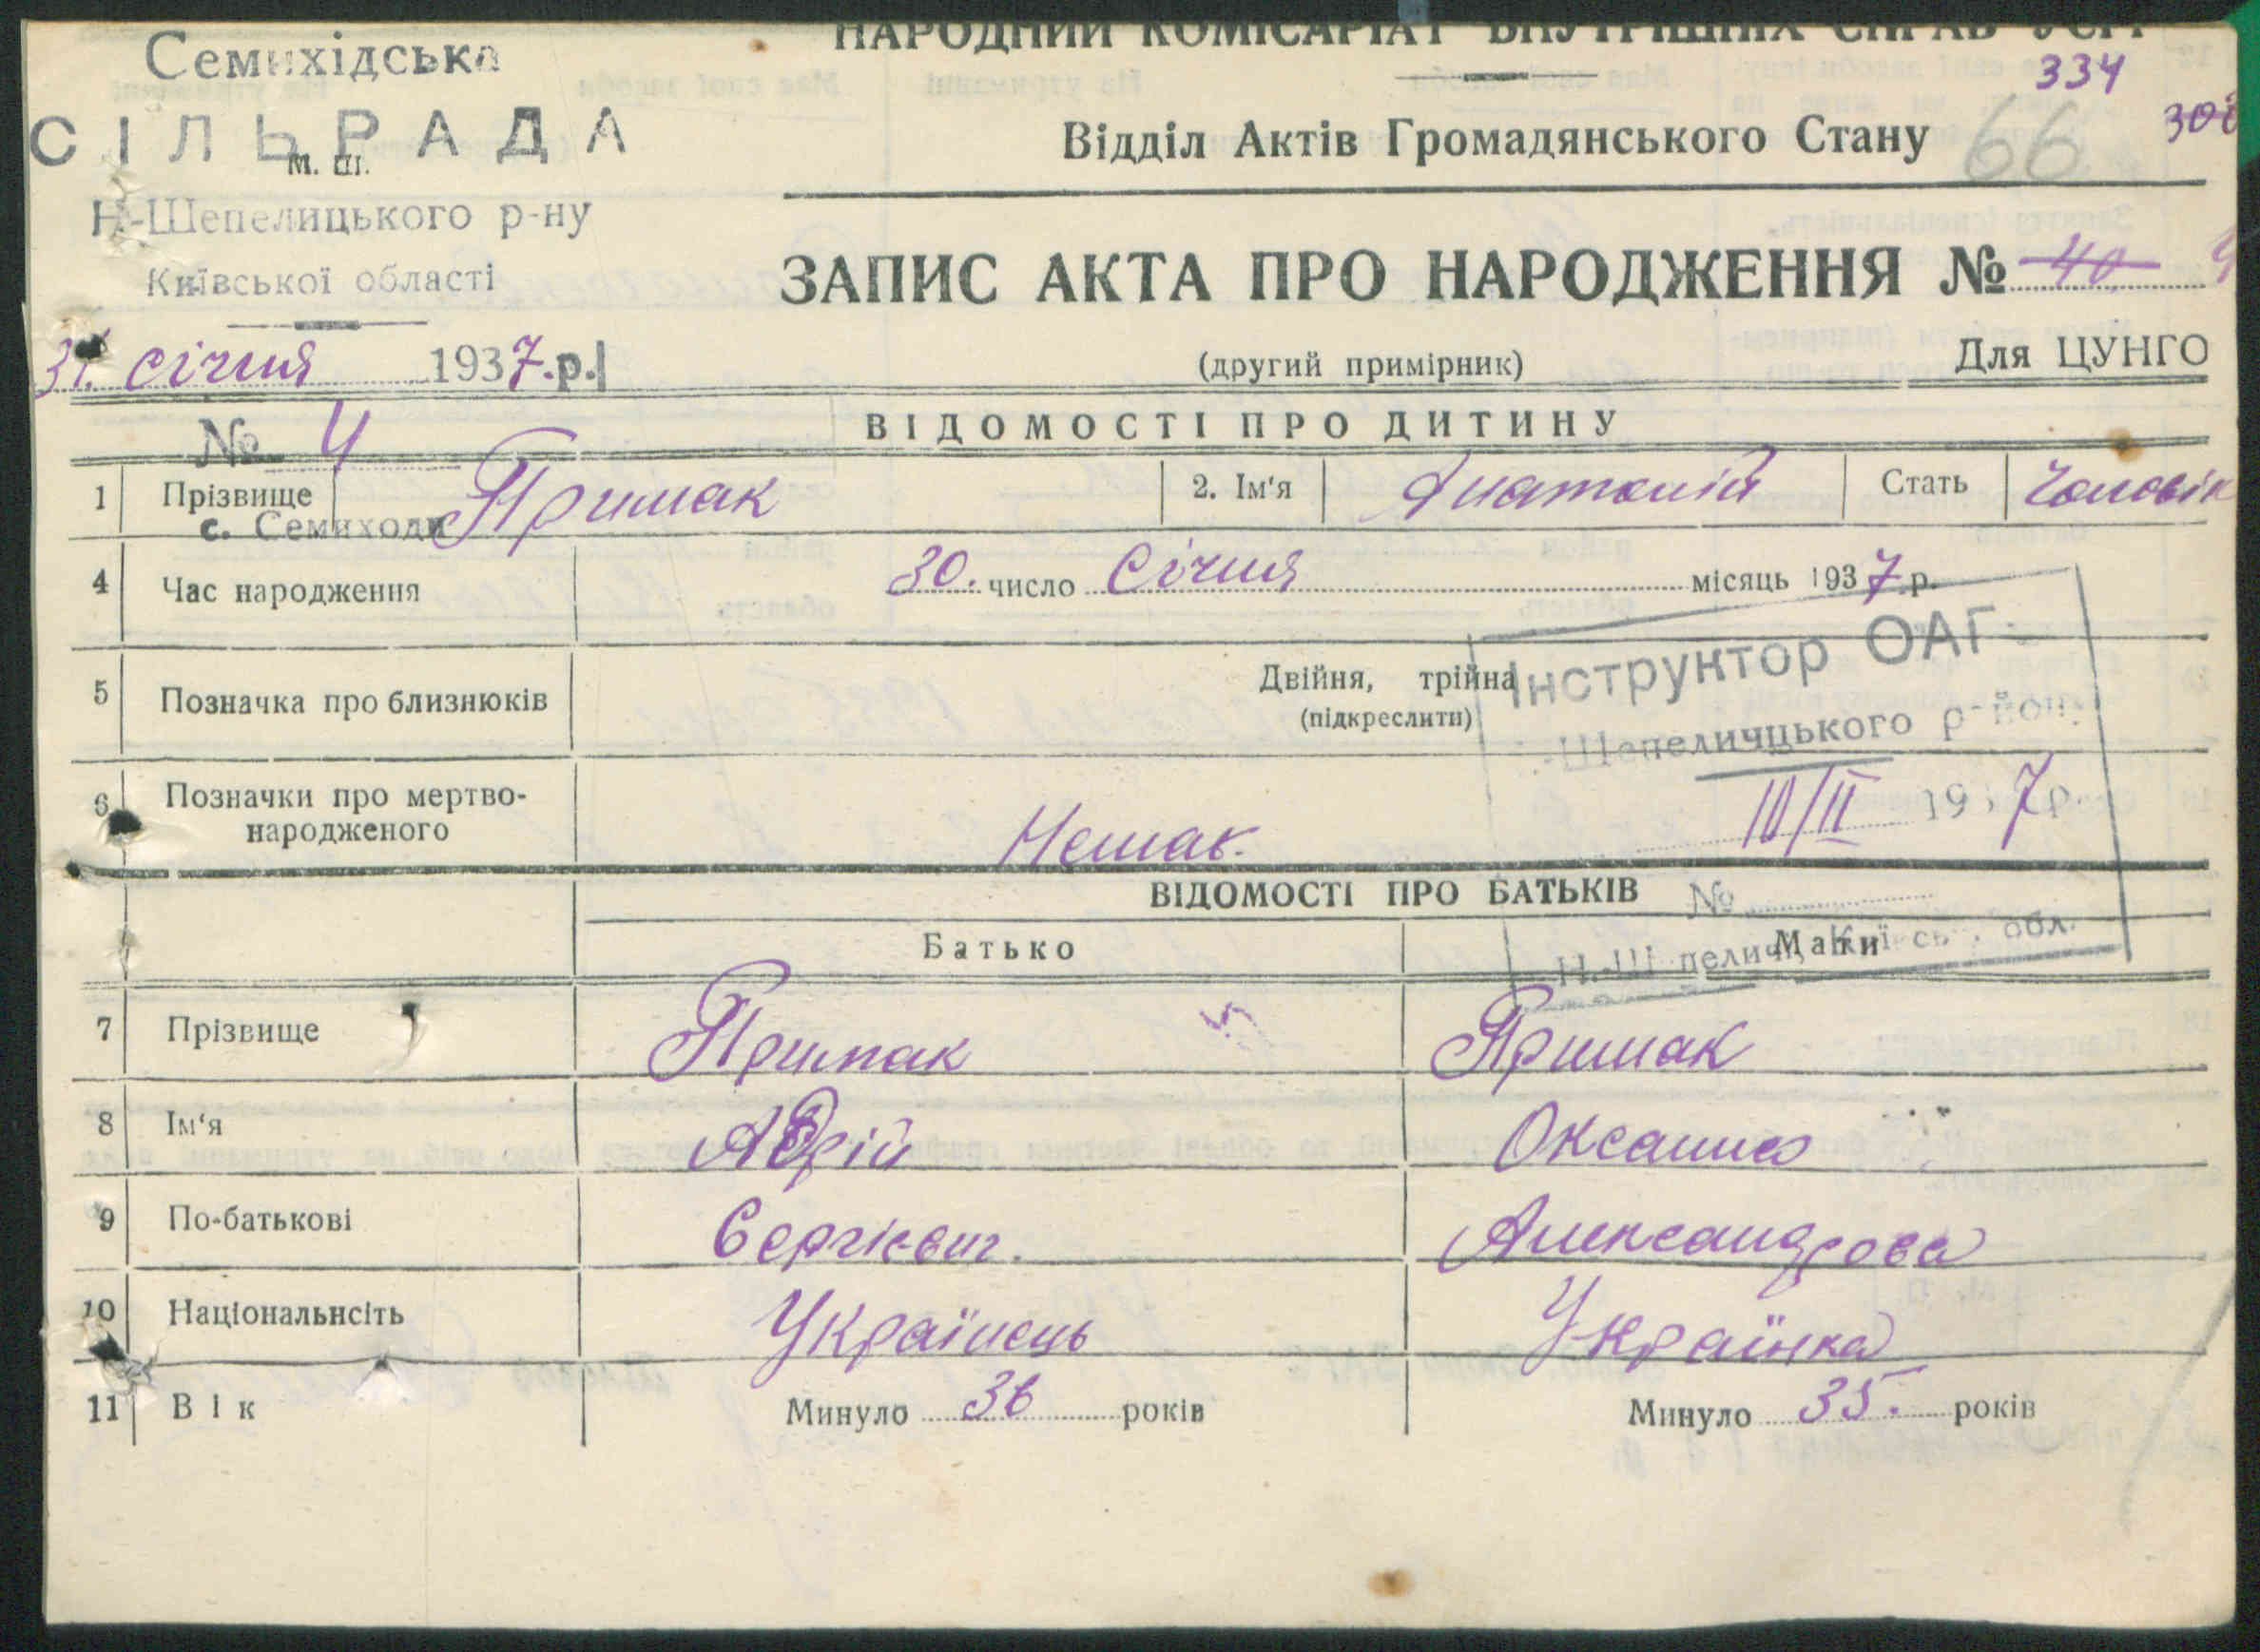 Семихідська
СІЛЬРАДА
м. ш.
Н-Шепелицького р-ну
Київської області
31. січня 1937.р.
№ 4
с. Семиходи
НАРОДНИЙ КОМІСАРІАТ ВНУТРІШНІХ СПРАВ УСРР
334
Відділ Актів Громадянського Стану
66
ЗАПИС АКТА ПРО НАРОДЖЕННЯ № 40 4
(другий примірник) Для ЦУНГО
ВІДОМОСТІ ПРО ДИТИНУ
1 Прізвище Примак 2. Ім'я Анатолій Стать Чоловік
4 Час народження 30. число Січня місяць 1937 р.
5 Позначка про близнюків Двійня, трійня
(підкреслити)
Інструктор ОАГ
Шепеличцького
10/II 1937р.
№
6 Позначки про мертво-
народженого Немає.
ВІДОМОСТІ ПРО БАТЬКІВ
Батько Мати
7 Прізвище Примак Примак
8 Ім'я Оксана
9 По-батькові Сергієвич. Александрова
10 Національнсіть Українець Українка
11 Вік Минуло 36 років Минуло 35. років